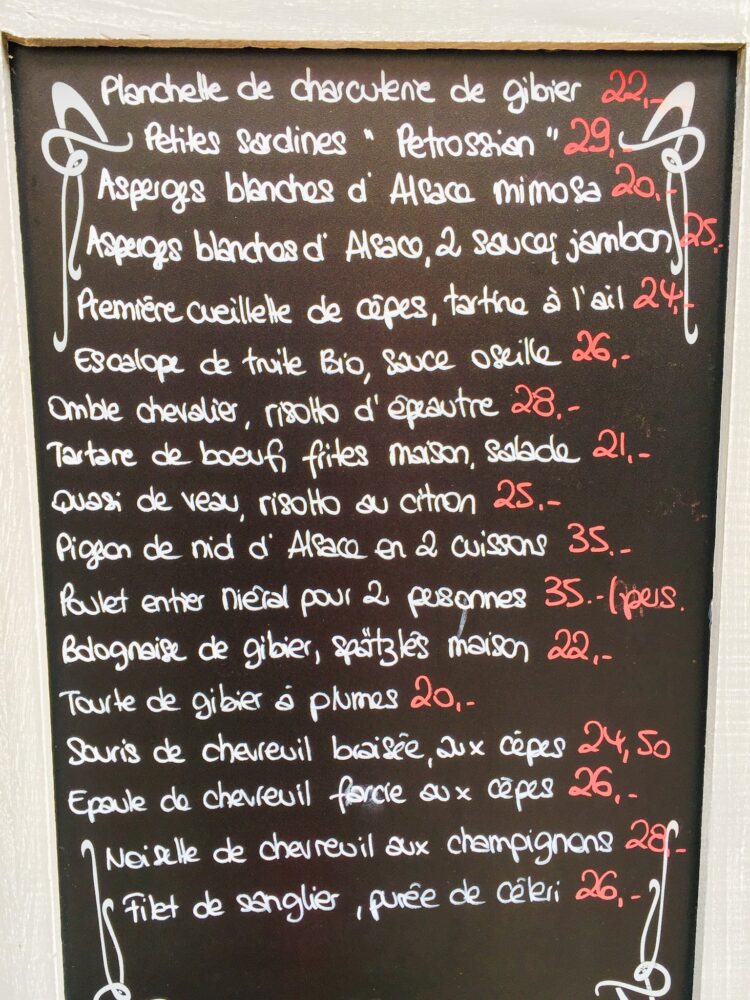 Planchette de charcuterie de gibier 22,-
Petites sardines " Petrossian " 29,-
Asperges blanches d' Alsace mimosa 20,-
Asperges blanches d' Alsace, 2 sauces, jambon 25.-
Première cueillette de cêpes, tartine à l'ail 24,-
Escalope de truite Bio, sauce oseille 26,-
Omble chevalier, risotto d'épeautre 28.-
Tartare de boeuf, frites maison, salade 21,-
Quasi de veau, risotto au citron 25.-
Pigeon de nid d' Alsace en 2 cuissons 35.-
Poulet entier Miéral pour 2 personnes 35.-/pers.
Bolognaise de gibier, spätzlés maison 22,-
Tourte de gibier à plumes 20,-
Souris de chevreuil braisée, aux cêpes 24,50
Epaule de chevreuil farcie aux cêpes 26,-
Noisette de chevreuil aux champignons 28,-
Filet de sanglier, purée de cêleri 26,-